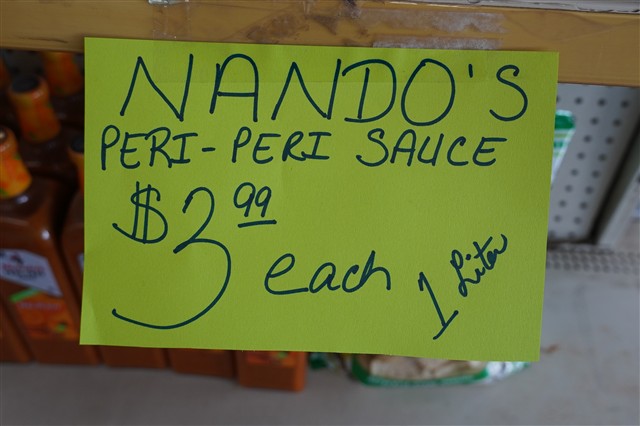 NANDO'S
PERI-PERI SAUCE
$3.99 each
1 Liter